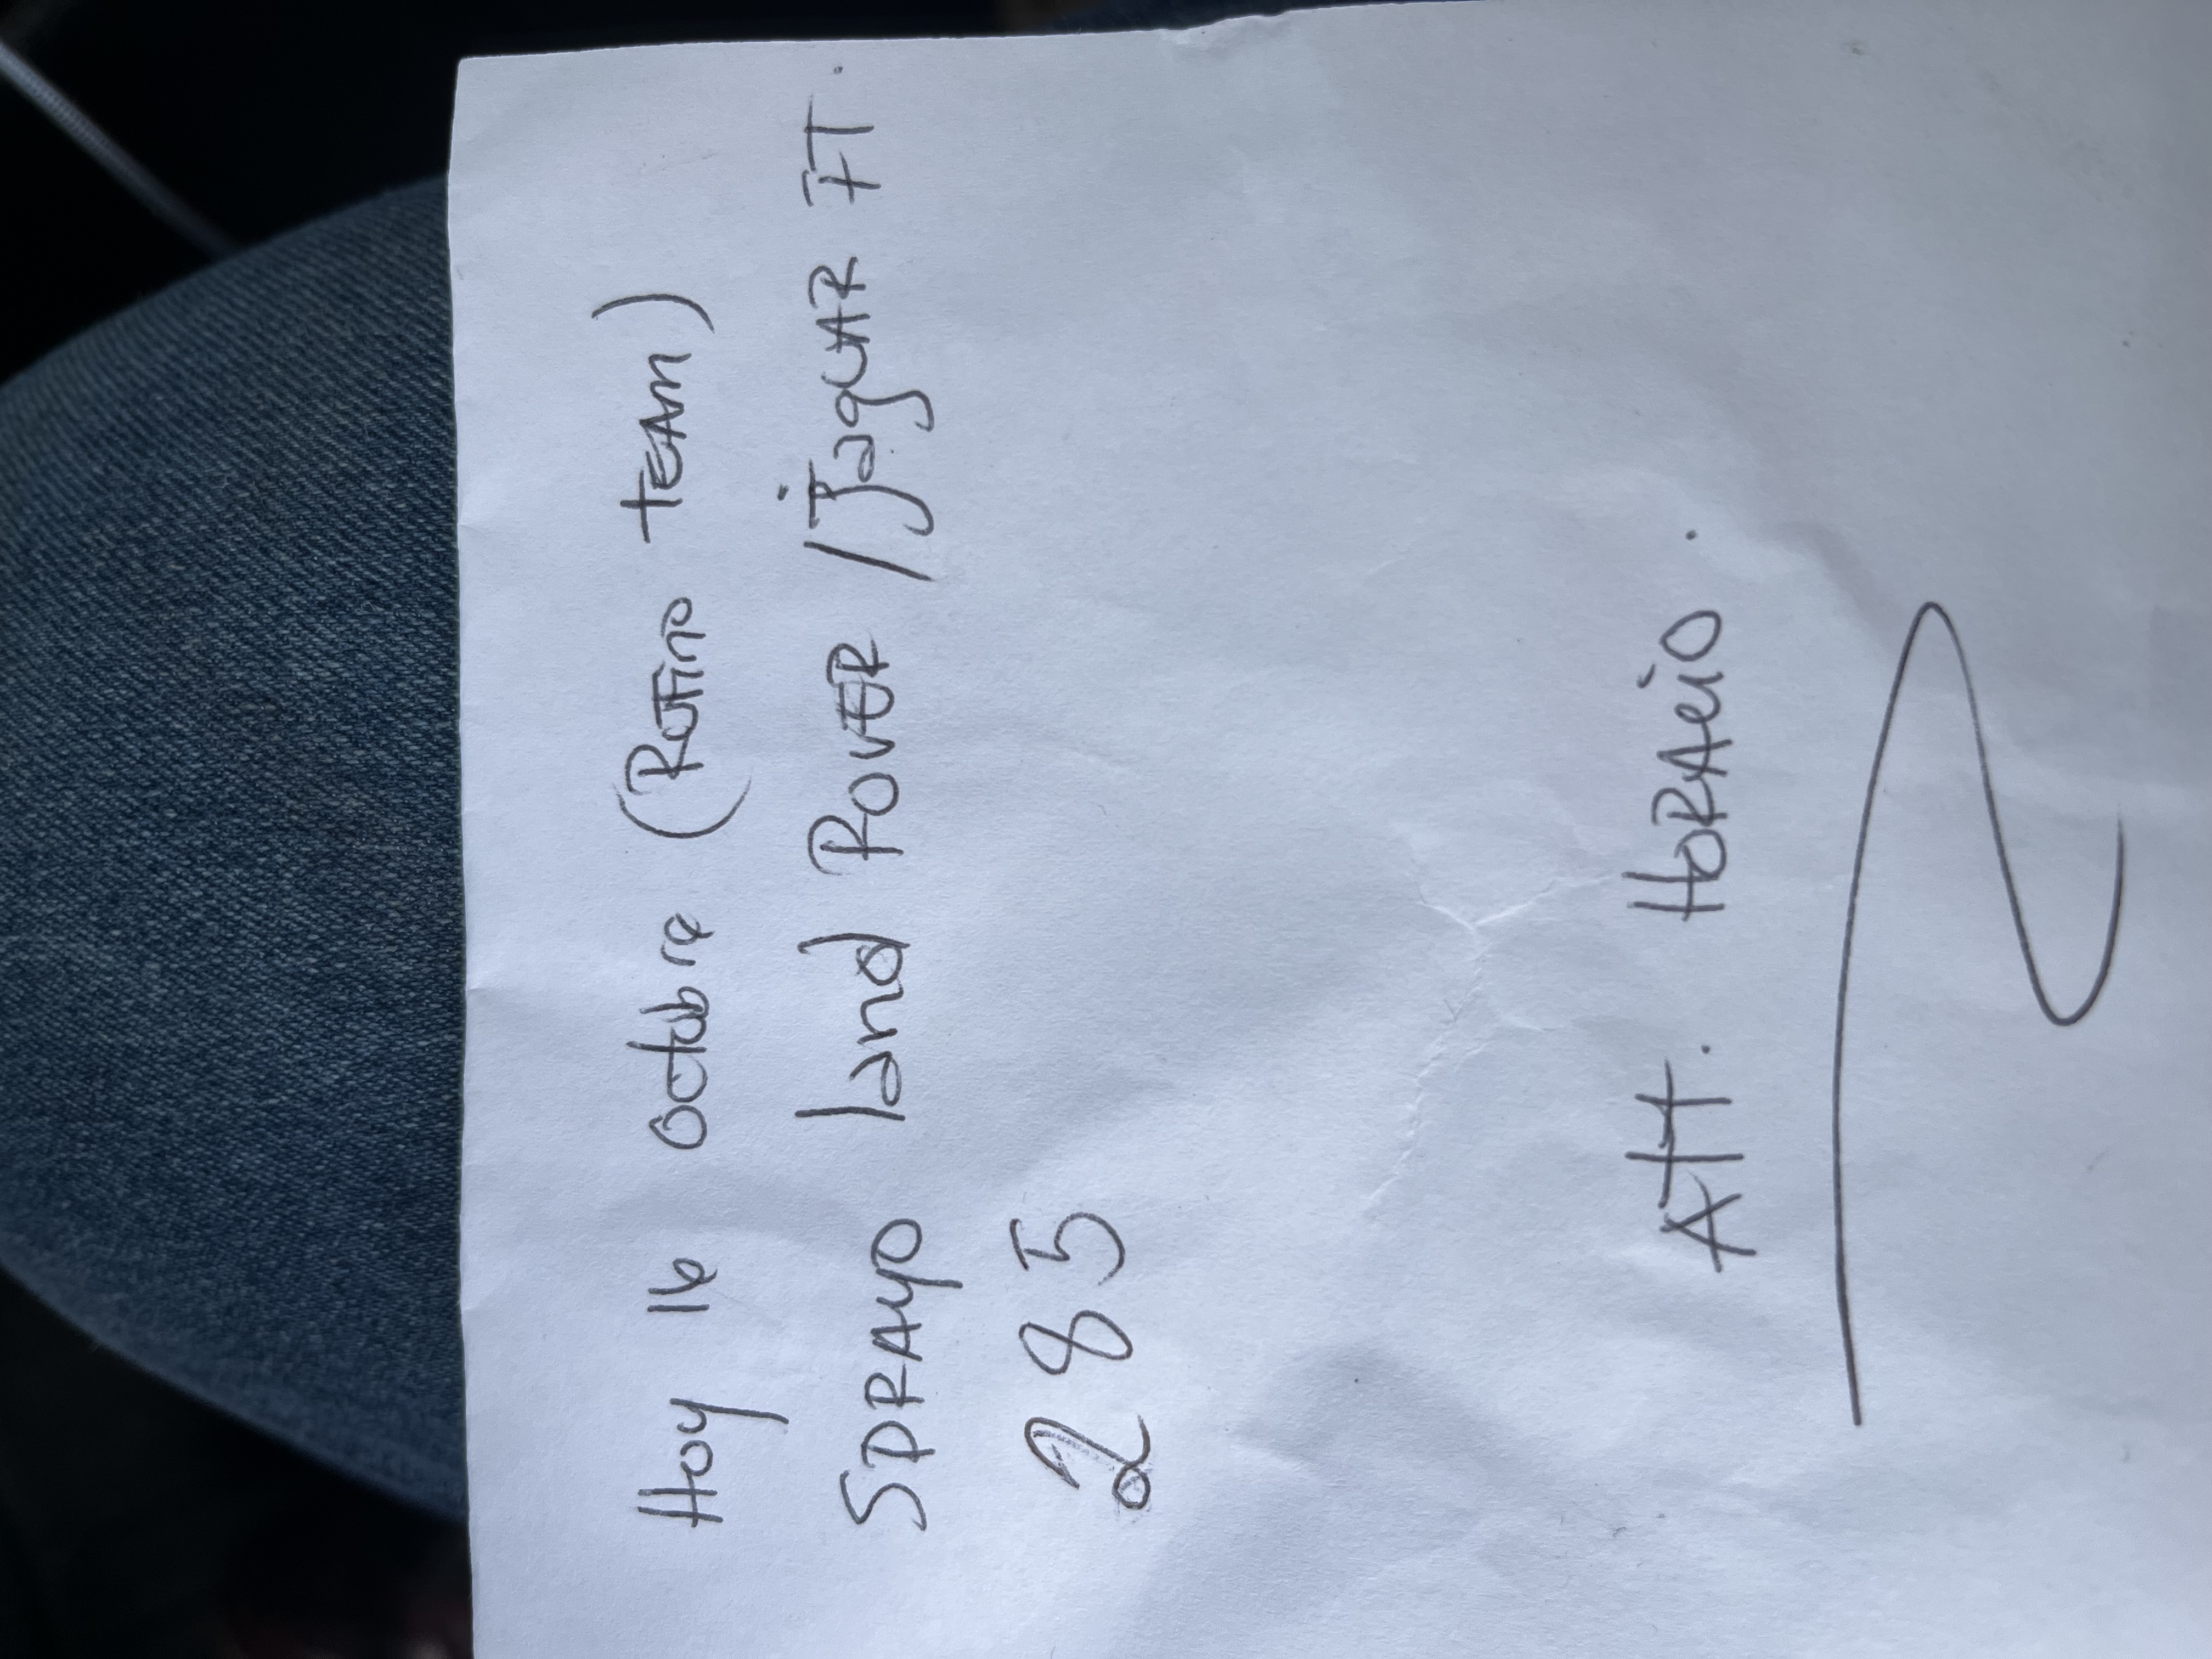 Hoy 16 octubre (Rufino team)
Sprayo land Rover / Jaguar FT.
285
Att. Horacio.